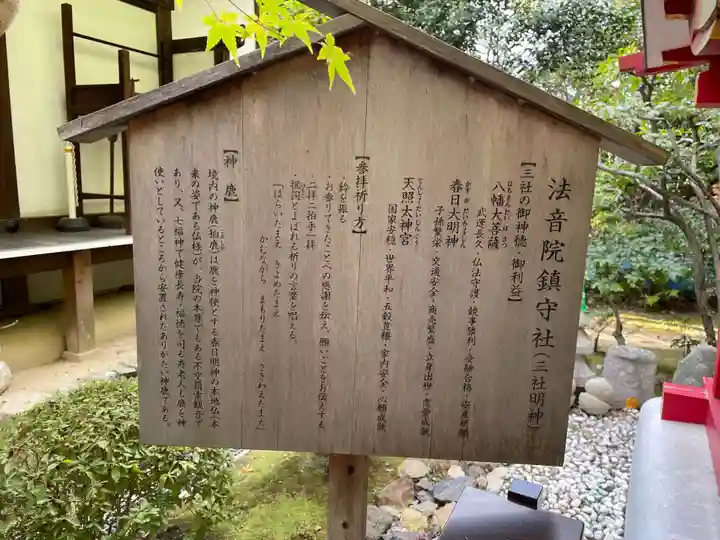 法音院鎮守社(三社明神)
【三社の御神徳・御利益】
八幡大菩薩
はちまんだいぼさつ
武運長久・仏法守護・競事勝利・受験合格・安産祈願
春日大明神
かすがだいみょうじん
子孫繁栄・交通安全・商売繁盛・立身出世・恋愛成就
天照太神宮
てんしょうだいじんぐう
国家安穏・世界平和・五穀豊穣・家内安全・心願成就
【参拝祈り方】
・鈴を振る
・お参りできたことへの感謝を伝え、願いごとをお伝えする。
・二拝二拍手一拝
・祝詞とよばれる祈りの言葉を唱える。
「はらいたまえ きよめたまえ
かむながら まもりたまえ さきわえたまえ」
【神鹿】
境内の神鹿(狛鹿)は鹿を神使とする春日明神の本地仏(本
来の姿である仏様)が、当院の本尊でもある不空羂索観音で
あり、又、七福神で健康長寿・福徳を司る寿老人も鹿を神
使いとしているところから安置されたありがたい神鹿である。